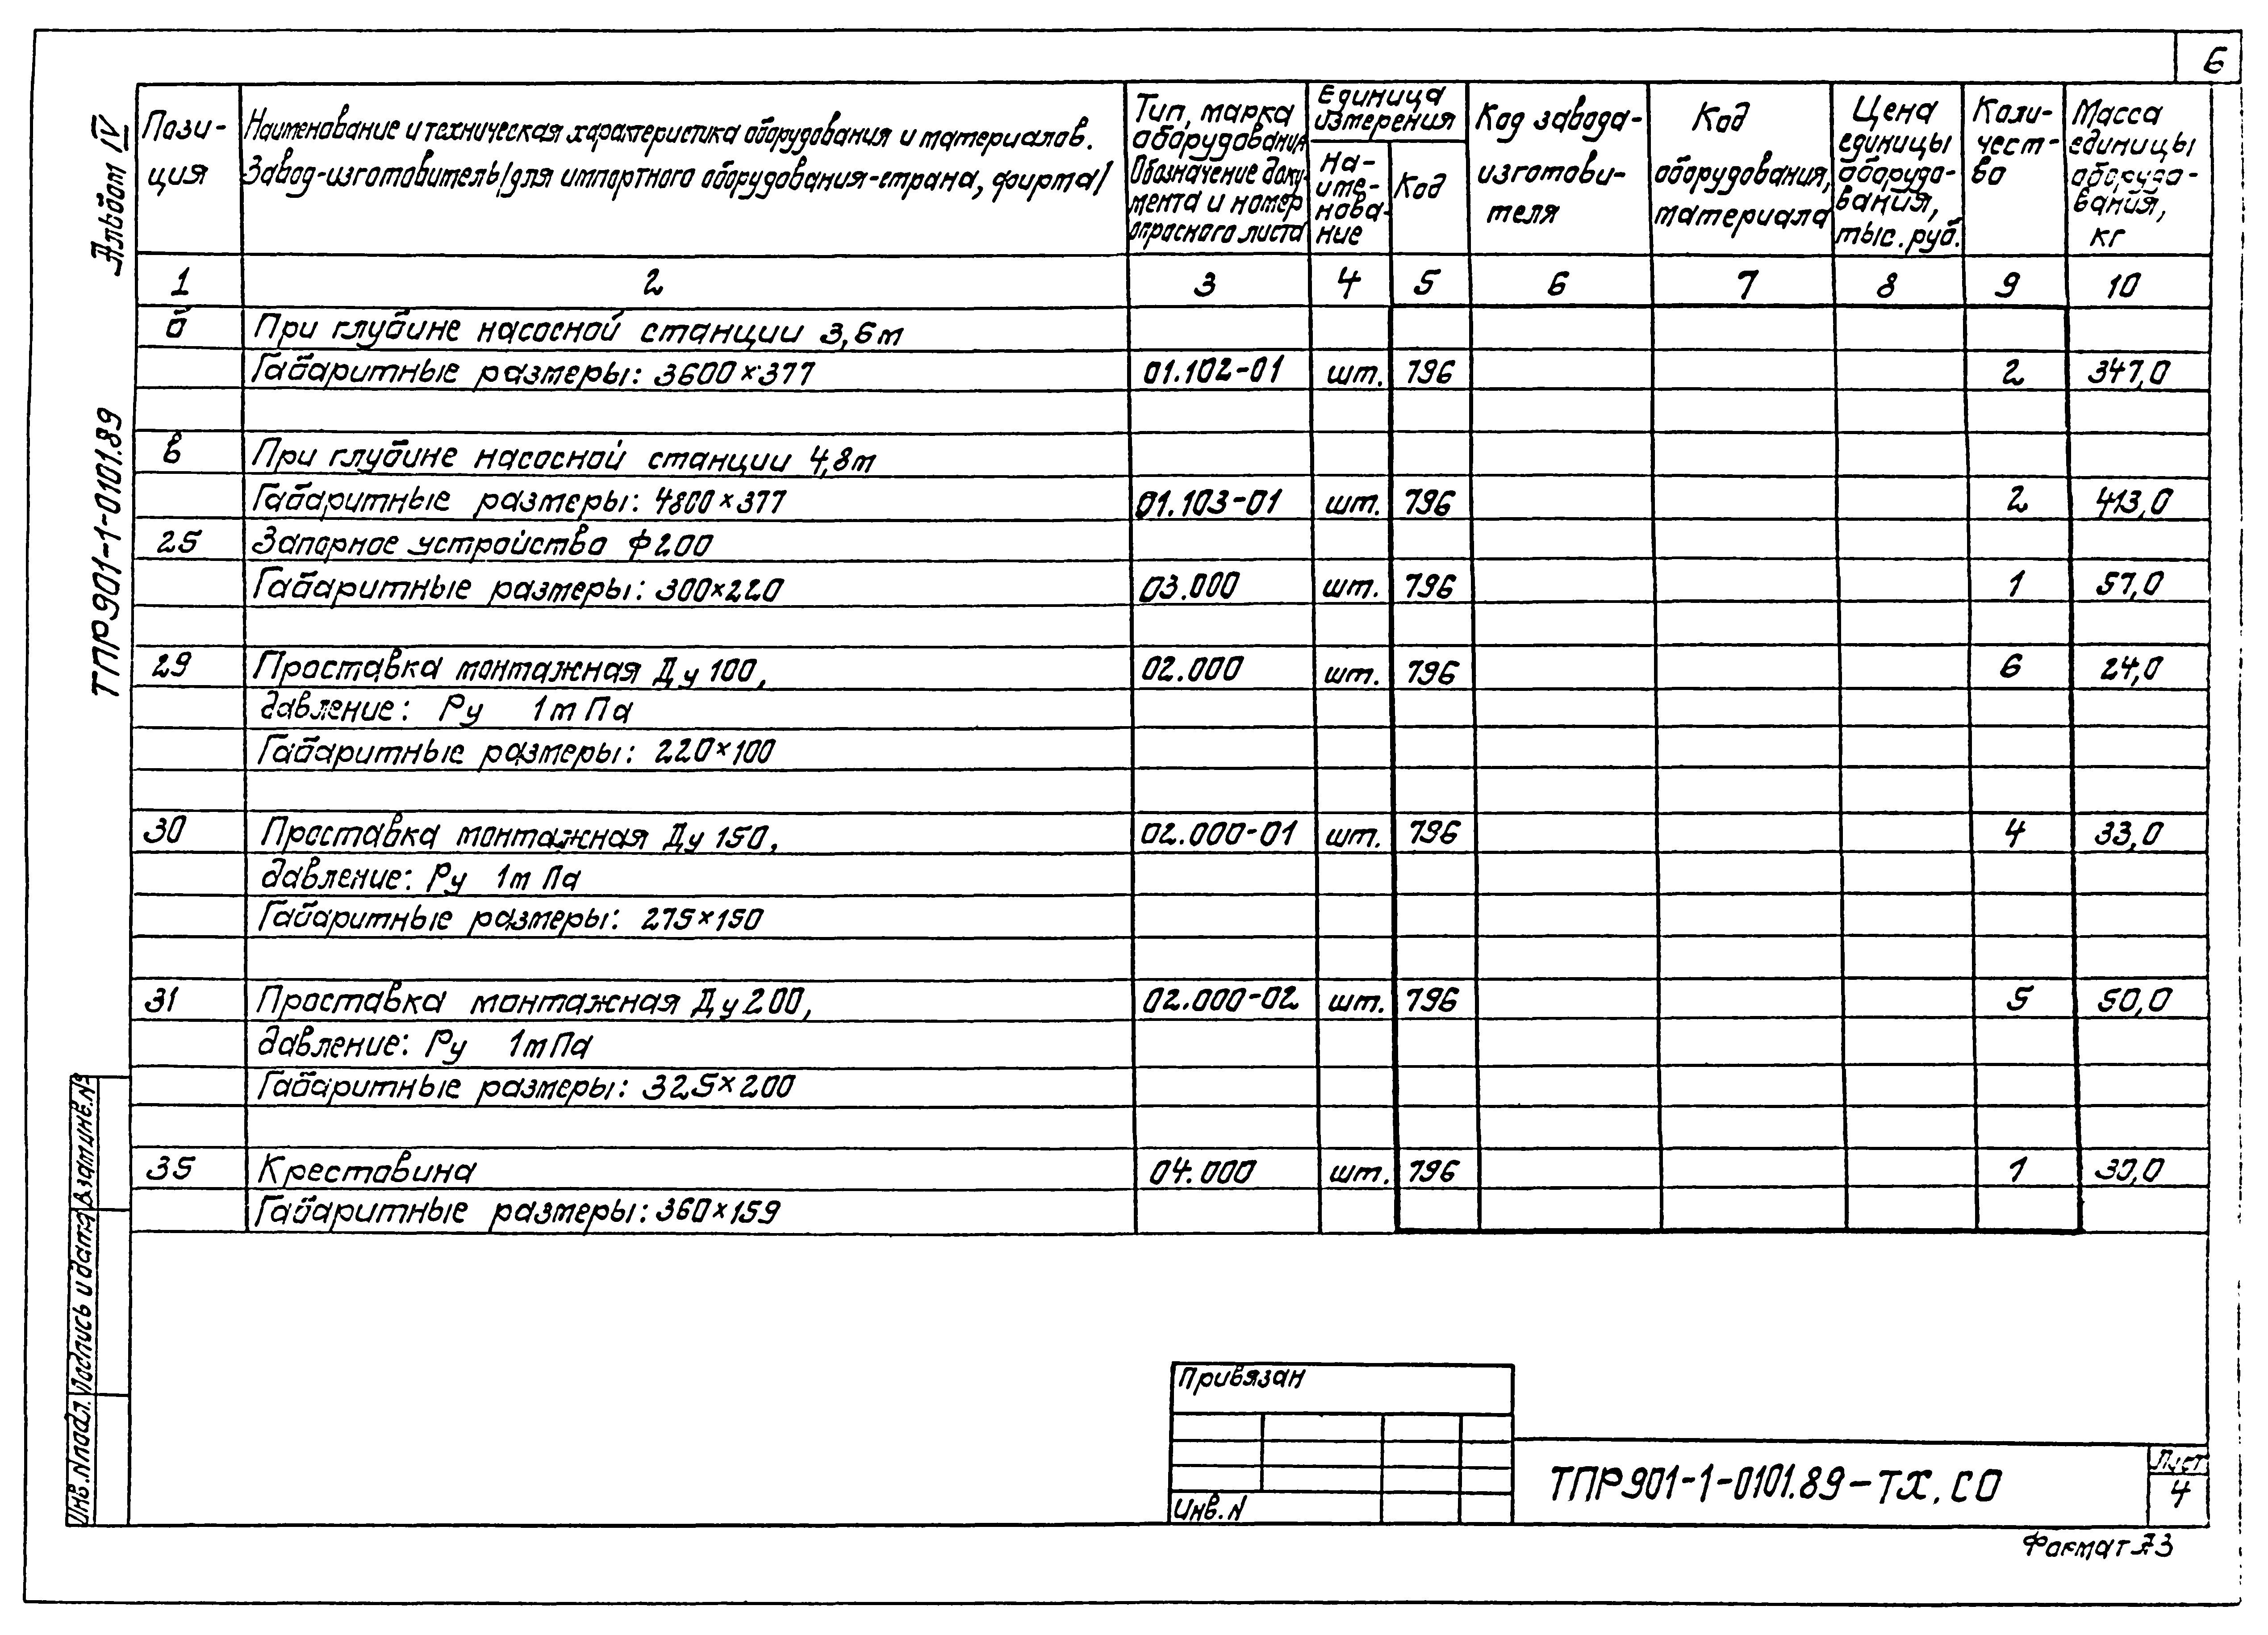 6
Альбом IV
ТПР901-1-0101.89
Пози-
ция
Наименование и техническая характеристика оборудования и материалов.
Завод-изготовитель/для импортного оборудования-страна, фирма/
Тип, марка
оборудования
Обозначение доку-
мента и номер
опросного листа
Единица
измерения
На-
име-
нова-
ние
Код
Код завода-
изготови-
теля
Код
оборудования,
материала
Цена
единицы
оборудо-
вания,
тыс. руб.
Коли-
чест-
во
Масса
единицы
оборудо-
вания,
кг
1 2 3 4 5 6 7 8 9 10
б При глубине насосной станции 3,6м
Габаритные размеры: 3600×377 01.102-01 шт. 796 2 347,0
в При глубине насосной станции 4,8м
Габаритные размеры: 4800×377 01.103-01 шт. 796 2 413,0
25 Запорное устройство ф200
Габаритные размеры: 300×220 03.000 шт. 796 1 57,0
29 Проставка монтажная Ду 100, 02.000 шт. 796 6 24,0
давление: Ру 1мПа
Габаритные размеры: 220×100
30 Проставка монтажная Ду 150, 02.000-01 шт. 796 4 33,0
давление: Ру 1мПа
Габаритные размеры: 275×150
31 Проставка монтажная Ду 200, 02.000-02 шт. 796 5 50,0
давление: Ру 1мПа
Габаритные размеры: 325×200
35 Крестовина 04.000 шт. 796 1 30,0
Габаритные размеры: 360×159
Взам инв. №
Подпись и дата
Инв. N подл.
Привязан
Инв. N
ТПР901-1-0101.89-ТХ.СО
Лист
4
Формат А3